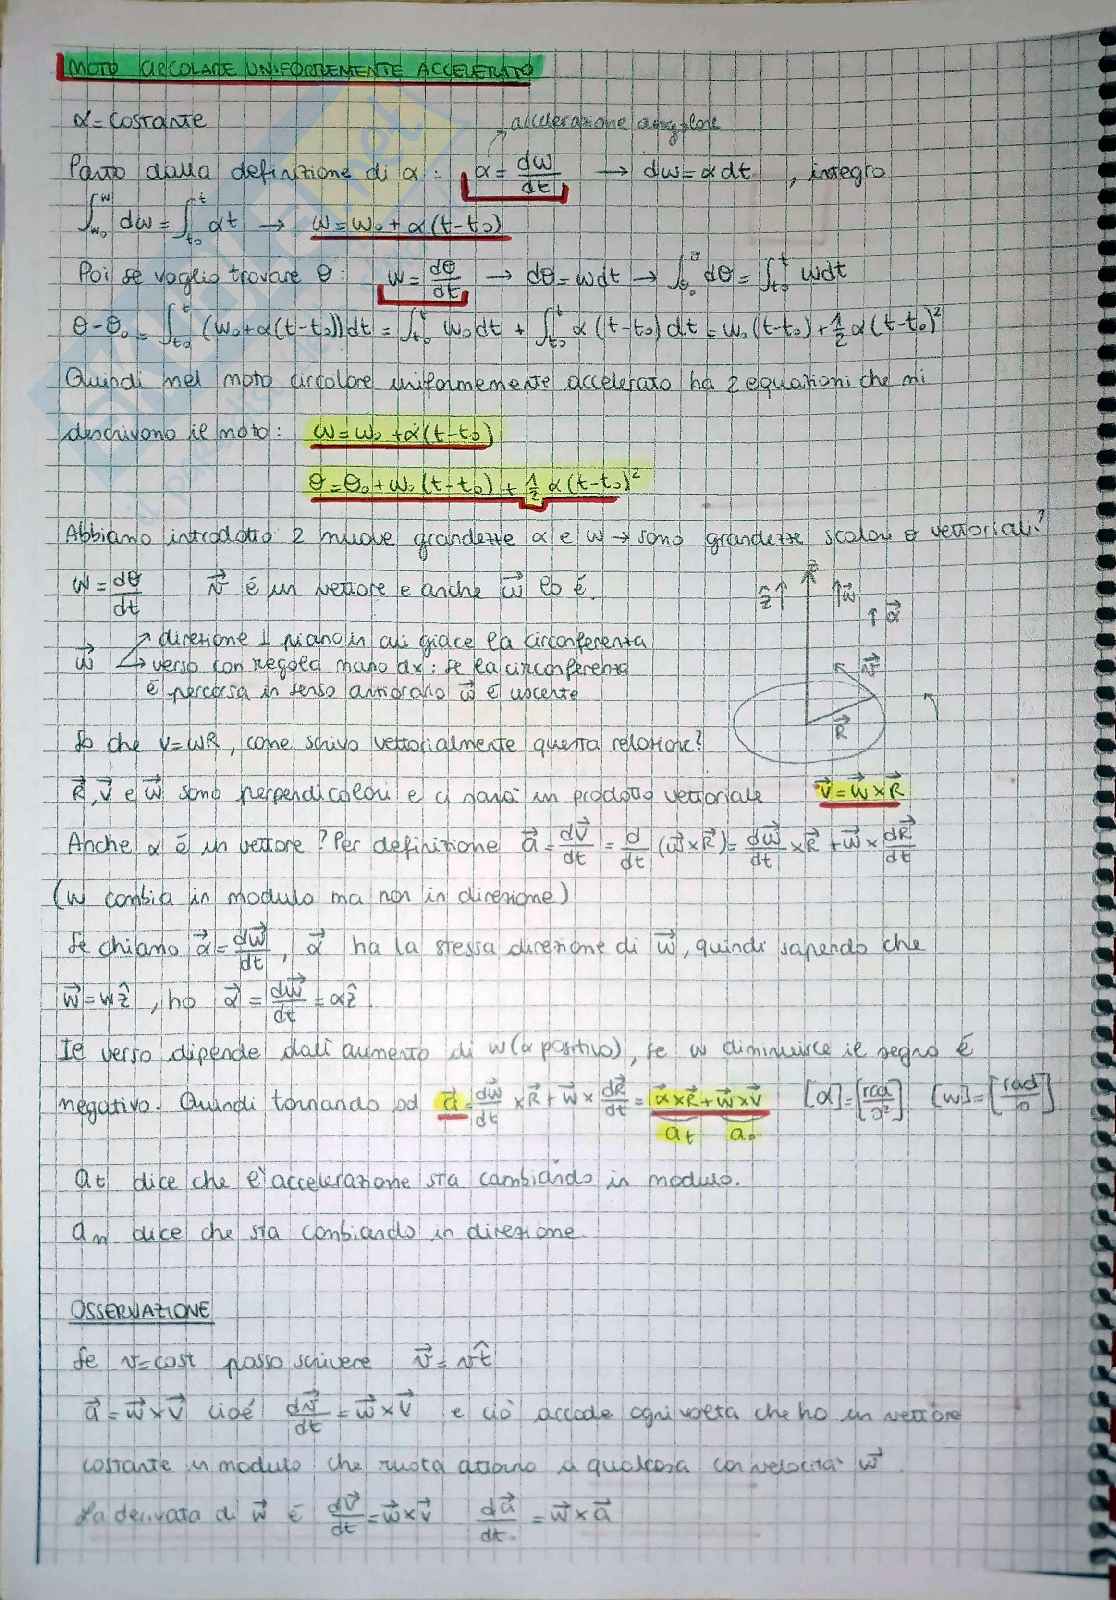 MOTO CIRCOLARE UNIFORMEMENTE ACCELERATO
α = costante
accelerazione angolare
Parto dalla definizione di α: α = dω/dt → dω = α dt, integro
∫_{ω₀}^{ω} dω = ∫_{t₀}^{t} αt → ω = ω₀ + α(t-t₀)
Poi se voglio trovare θ: ω = dθ/dt → dθ = ωdt → ∫_{θ₀}^{θ} dθ = ∫_{t₀}^{t} ωdt
θ-θ₀ = ∫_{t₀}^{t} (ω₀+α(t-t₀))dt = ∫_{t₀}^{t} ω₀dt + ∫_{t₀}^{t} α(t-t₀)dt = ω₀(t-t₀) + 1/2 α(t-t₀)²
Quindi nel moto circolare uniformemente accelerato ha 2 equazioni che mi
descrivono il moto: ω = ω₀ + α(t-t₀)
θ = θ₀ + ω₀(t-t₀) + 1/2 α(t-t₀)²
Abbiamo introdotto 2 nuove grandezze α e ω → sono grandezze scalari o vettoriali?
ω = dθ/dt v⃗ é un vettore e anche ω⃗ lo é.
ẑ ω⃗ α⃗ v⃗ R⃗
ω⃗ direzione ⊥ piano in cui giace la circonferenza
verso con regola mano dx: se la circonferenza
é percorsa in senso antiorario ω⃗ é uscente
So che v=ωR, come scrivo vettorialmente questa relazione?
R⃗, v⃗ e ω⃗ sono perpendicolari e ci sarà un prodotto vettoriale v⃗ = ω⃗ × R⃗
Anche α é un vettore? Per definizione a⃗ = dv⃗/dt = d/dt (ω⃗×R⃗) = dω⃗/dt × R⃗ + ω⃗ × dR⃗/dt
(ω cambia in modulo ma non in direzione)
Se chiamo α⃗ = dω⃗/dt, α⃗ ha la stessa direzione di ω⃗, quindi sapendo che
ω⃗ = ωẑ, ho α⃗ = dω⃗/dt = αẑ.
Il verso dipende dall'aumento di ω (α positivo), se ω diminuisce il segno é
negativo. Quindi tornando ad a⃗ = dω⃗/dt × R⃗ + ω⃗ × dR⃗/dt = α⃗×R⃗ + ω⃗×v⃗ [α] = [rad/s²] [ω] = [rad/s]
aₜ aₙ
aₜ dice che l'accelerazione sta cambiando in modulo.
aₙ dice che sta cambiando in direzione.
OSSERVAZIONE
Se v=cost posso scrivere v⃗ = vt̂
a⃗ = ω⃗×v⃗ cioé dv⃗/dt = ω⃗×v⃗ e ciò accade ogni volta che ho un vettore
costante in modulo che ruota attorno a qualcosa con velocità ω⃗.
La derivata di ω⃗ é dv⃗/dt = ω⃗×v⃗ da⃗/dt = ω⃗×a⃗